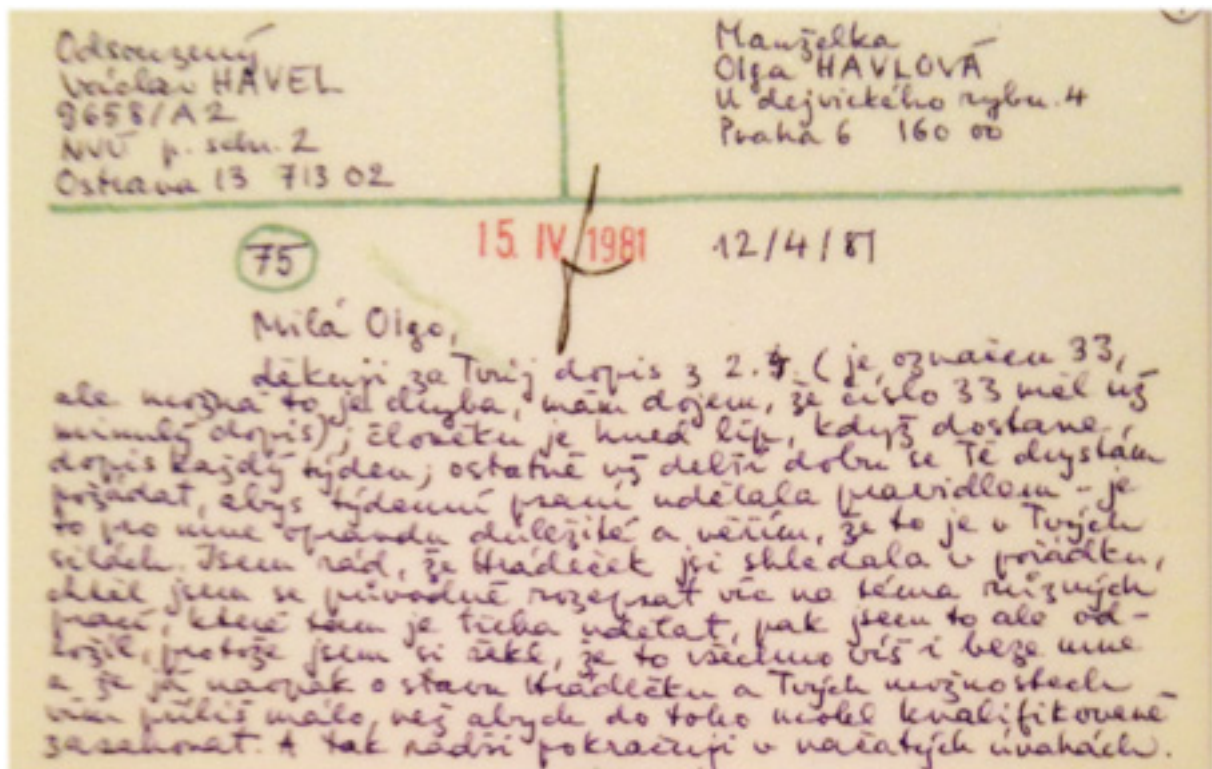 Odsouzený
Václav HAVEL
9658/A2
NVÚ p. schr. 2
Ostrava 13 713 02
Manželka
Olga HAVLOVÁ
U dejvického rybn. 4
Praha 6 160 00
75
15. IV. 1981
12/4/81
Milá Olgo,
děkuji za Tvůj dopis z 2.4. (je označen 33,
ale možná to je chyba, mám dojem, že číslo 33 měl už
minulý dopis); člověku je hned líp, když dostane
dopis každý týden; ostatně už delší dobu se Tě chystám
požádat, abys týdenní psaní udělala pravidlem - je
to pro mne opravdu důležité a věřím, že to je v Tvých
silách. Jsem rád, že Hrádeček jsi shledala v pořádku,
chtěl jsem se původně rozepsat víc na téma různých
prací, které tam je třeba udělat, pak jsem to ale od-
ložil, protože jsem si řekl, že to všechno víš i beze mne
a že já naopak o stavu Hrádečku a Tvých možnostech
vím příliš málo, než abych do toho mohl kvalifikovaně
zasahovat. A tak radši pokračuji v načatých úvahách.